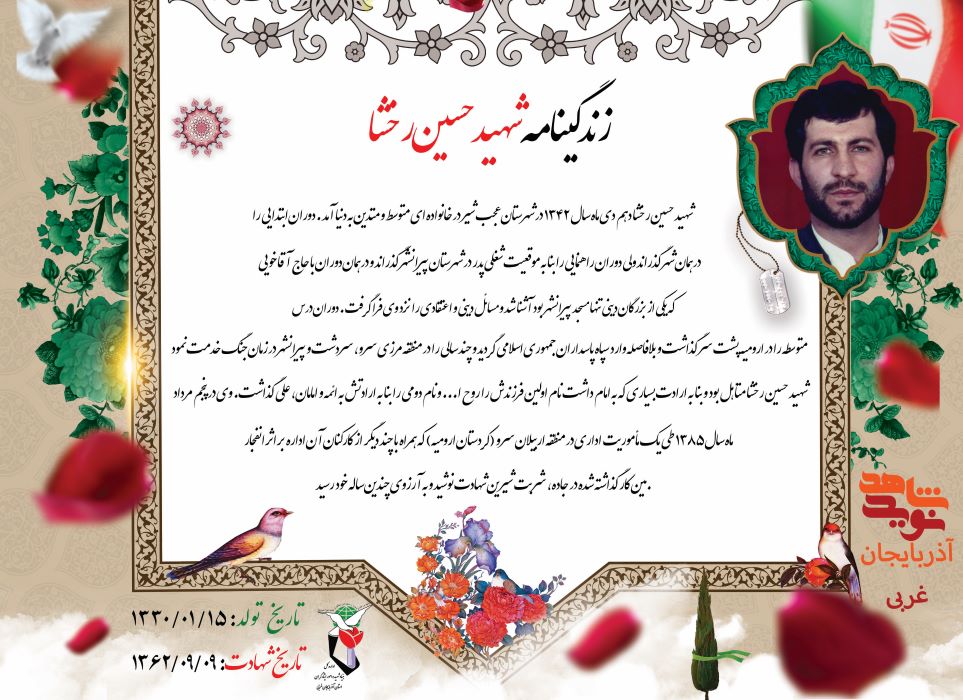 زندگینامه شهید حسین رخشا
شهید حسین رخشا دهم دی ماه سال ۱۳۴۲ در شهرستان عجب شیر در خانواده ای متوسط و متدین به دنیا آمد. دوران ابتدایی را
در همان شهر گذراند ولی دوران راهنمایی را بنا به موقعیت شغلی پدر در شهرستان پیرانشهر گذراند و در همان دوران با حاج آقا خویی
که یکی از بزرگان دینی تنها مسجد پیرانشهر بود آشنا شد و مسائل دینی و اعتقادی را نزد وی فرا گرفت. دوران درس
متوسطه را در ارومیه پشت سر گذاشت و بلافاصله وارد سپاه پاسداران جمهوری اسلامی گردید و چند سالی را در منطقه مرزی سرو، سردشت و پیرانشهر در زمان جنگ خدمت نمود
شهید حسین رخشا متاهل بود و بنا به ارادت بسیاری که به امام داشت نام اولین فرزندش را روح ا... و نام دومی را بنا به ارادتش به ائمه و امامان، علی گذاشت. وی در پنجم مرداد
ماه سال ۱۳۸۵ طی یک مأموریت اداری در منطقه اربیلان سرو (کردستان ارومیه) که همراه با چند دیگر از کارکنان آن اداره بر اثر انفجار
.مین کار گذاشته شده در جاده، شربت شیرین شهادت نوشید و به آرزوی چندین ساله خود رسید
شاهد
نوید
آذربایجان
غربی
تاریخ تولد: ۱۳۳۰/۰۱/۱۵
تاریخ شهادت: ۱۳۶۲/۰۹/۰۹